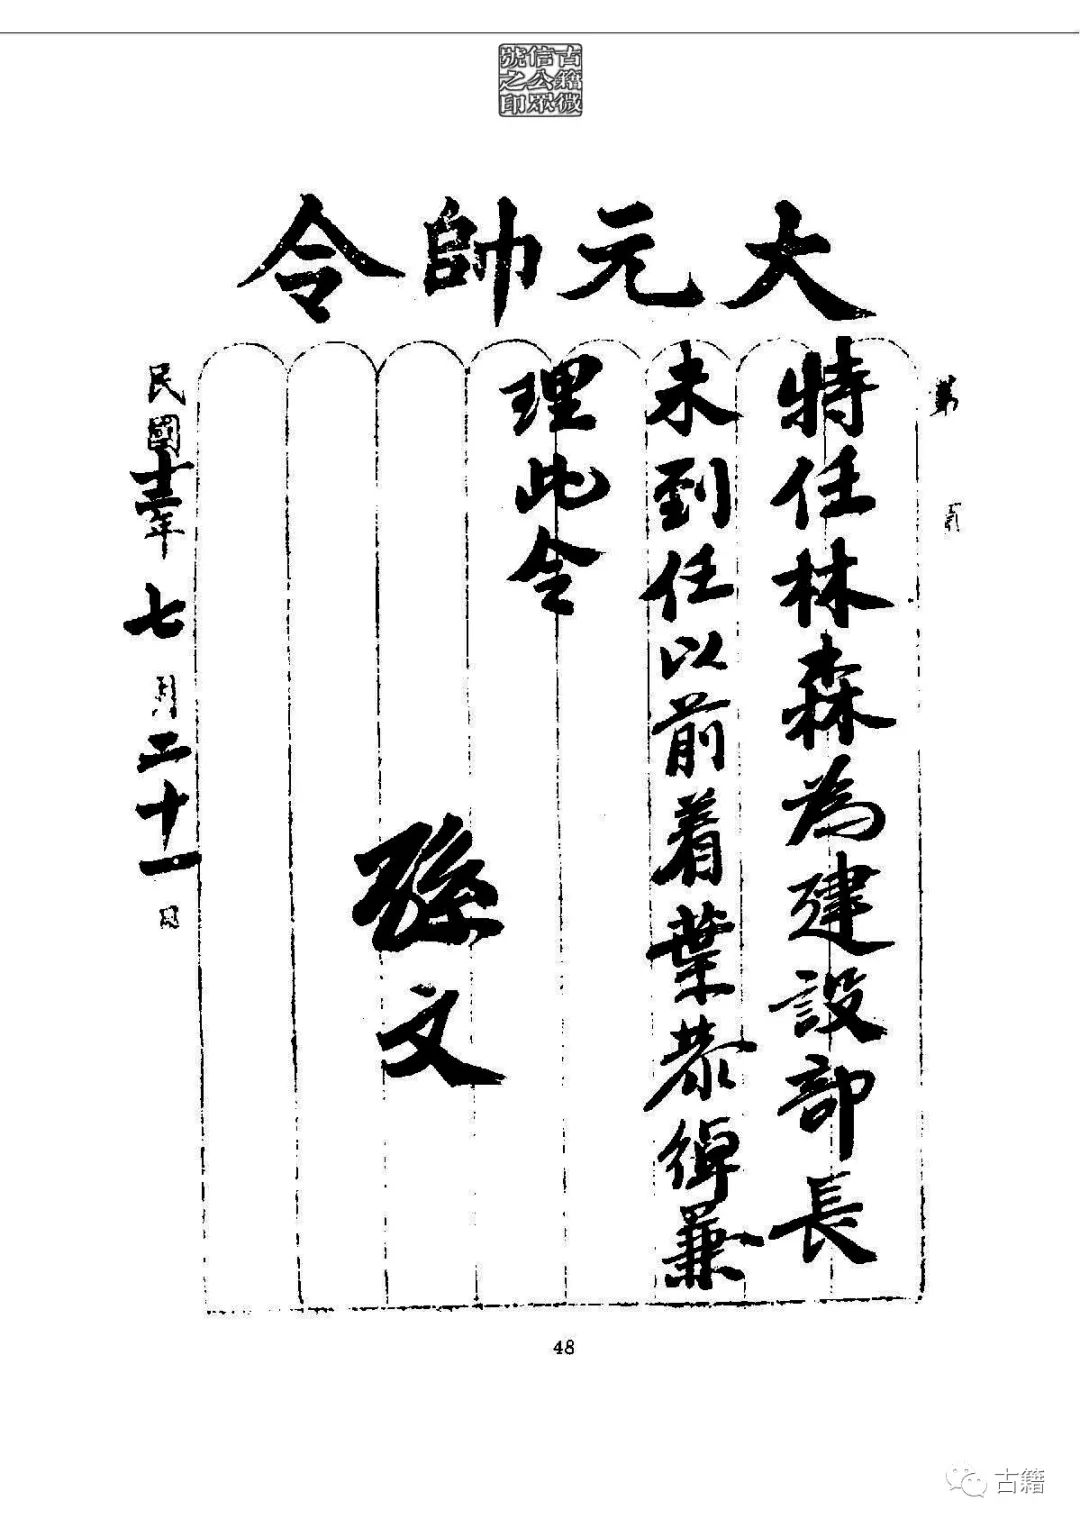 古籍微
信公眾
號之印
大元帥令
第　頁
特任林森為建設部長
未到任以前着葉恭綽兼
理此令
孫文
民國十二年七月二十一日
48
古籍